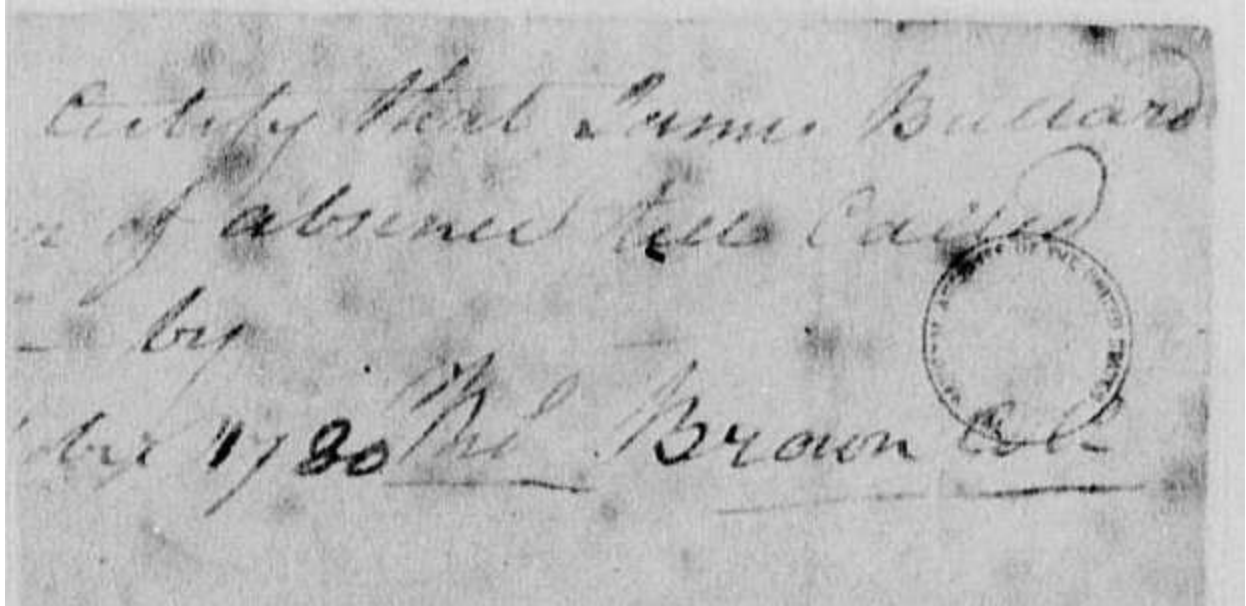 Certify that James Bullard
of absence till Called
by
1780 Thos Brown Coll